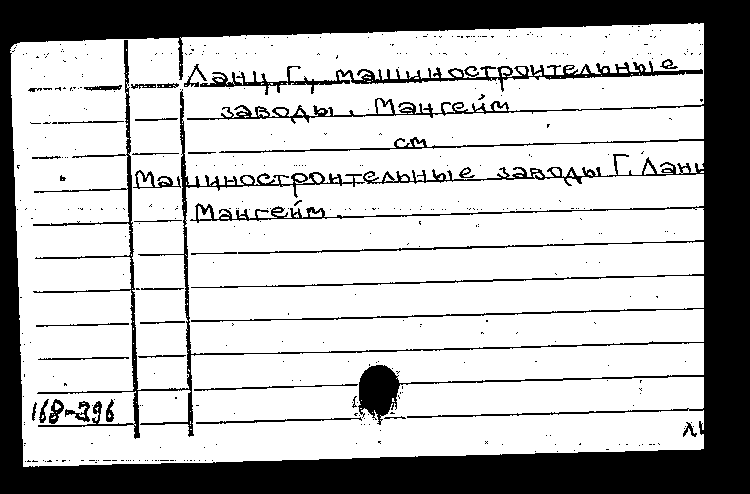 Ланц, Г., машиностроительные
заводы. Мангейм
см.
Машиностроительные заводы Г. Ланц
Мангейм.
168-296